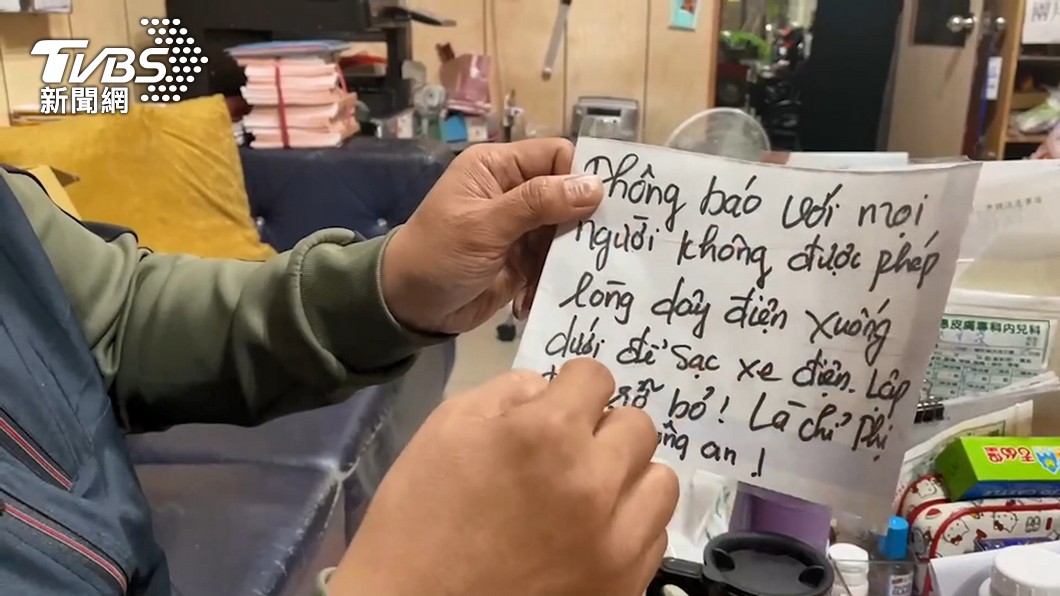 TVBS
新聞網
Phông báo với mọi
người không được phép
lòng dây điện xuống
dưới để sạc xe điện. Lập
bỏ! Là chỉ Phị
an!
皮膚專科內兒科